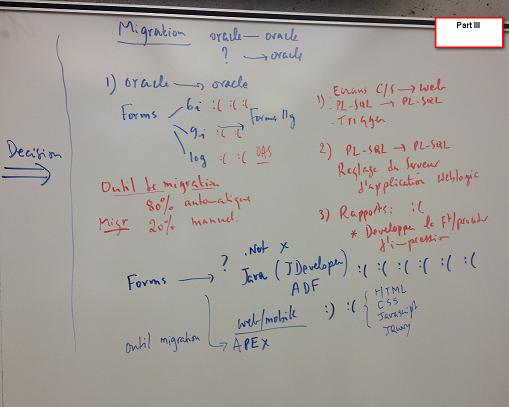 Part III
Migration oracle — oracle
? → oracle
Decision
1) oracle → oracle
Forms 6i :( :( :(
9i :( :( Forms 11g
log :( :( OAS
Outil de migration
80% automatique
Migr 20% manuel.
1) Ecrans C/S → web
. PL-SQL → PL-SQL
. Trigger
2) PL-SQL → PL-SQL
Reglage du Serveur
d'application Weblogic
3) Rapports: :(
* Developper la Ft/
d'impression
Forms → ? .Not X
Java (JDeveloper) :( :( :( :( :( :(
ADF
web/mobile :) :( { HTML
CSS
Javascript
JQuery
outil migration → APEX